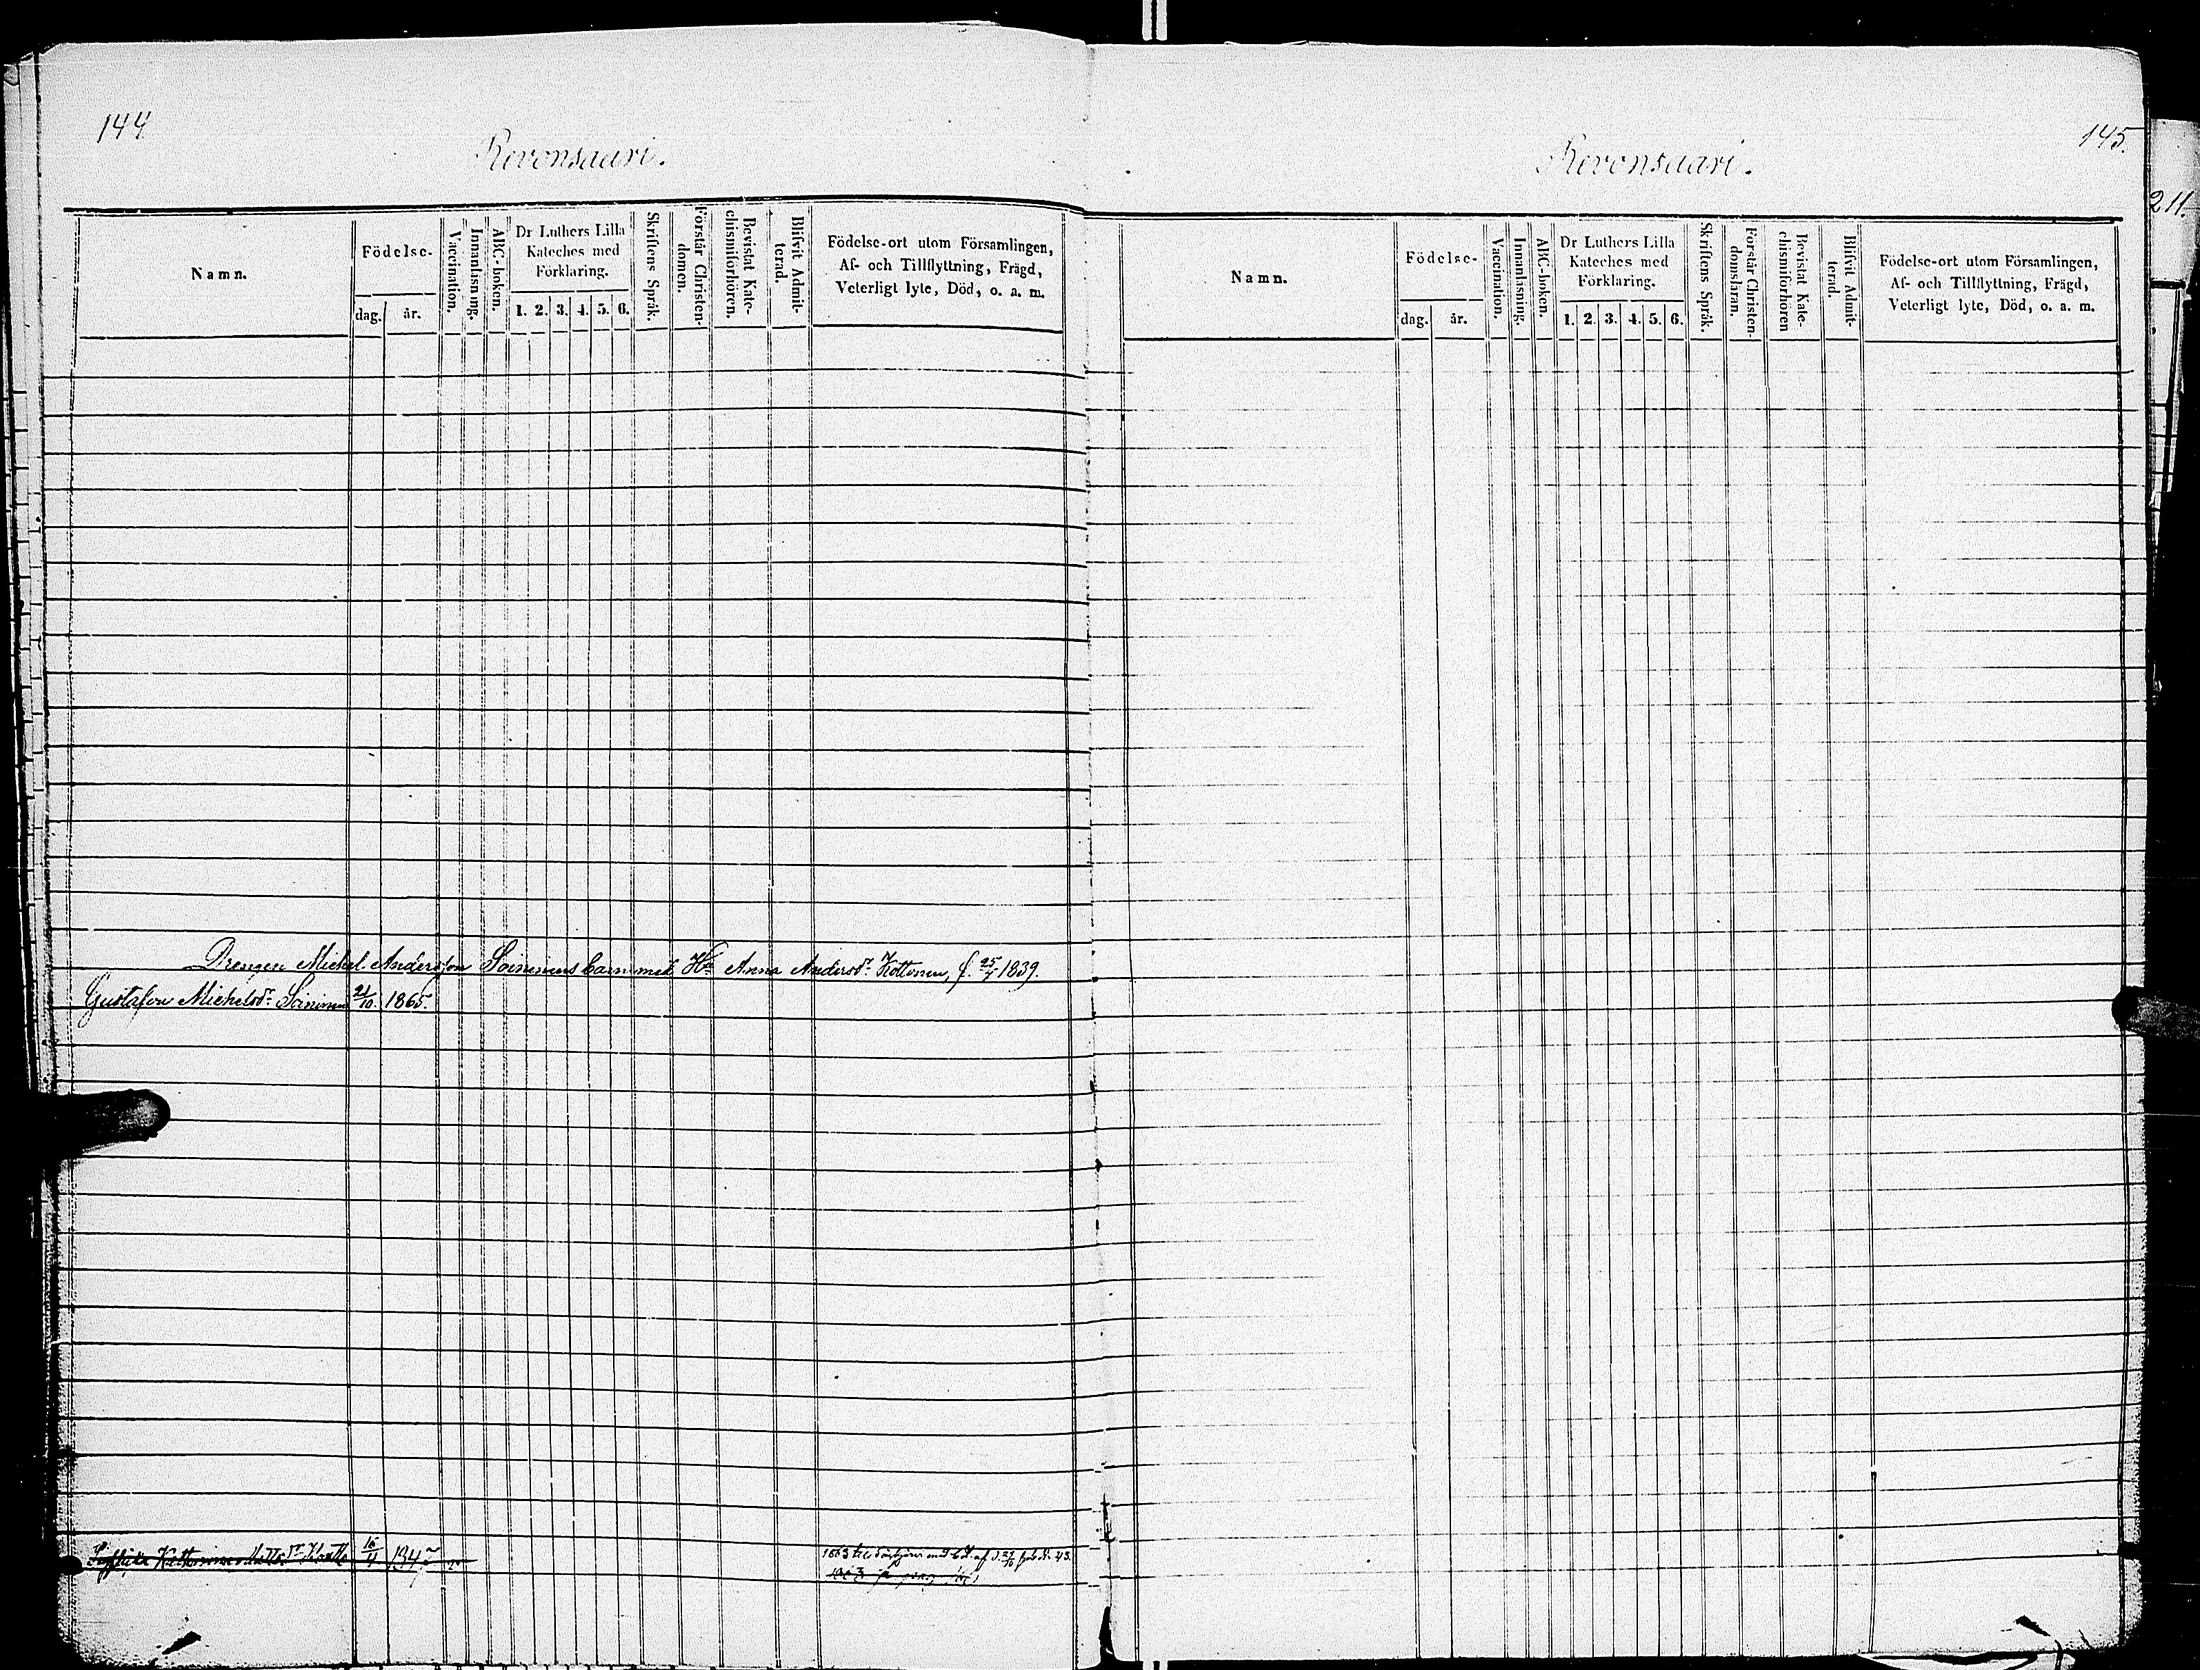 144
Revonsaari.
Namn.
Födelse-
dag.
år.
Vaccination.
Innanläsning.
ABC-boken.
Dr Luthers Lilla
Kateches med
Förklaring.
1. 2. 3. 4. 5. 6.
Skriftens Språk.
Förstår Christen-
domen.
Bevistat Kate-
chismiförhören.
Blifvit Admit-
terad.
Födelse-ort utom Församlingen,
Af- och Tillflyttning, Frägd,
Veterligt lyte, Död, o. a. m.
Drengen Michel Andersson Soininens barn med H Anna Andersdr Kottonen, f. 25/4 1839.
Gustafva Michelsdr Soininen 21/10. 1865.
16/4 184
1863 med af
1863
145.
Revonsaari.
Namn.
Födelse-
dag.
år.
Vaccination.
Innanläsning.
ABC-boken.
Dr Luthers Lilla
Kateches med
Förklaring.
1. 2. 3. 4. 5. 6.
Skriftens Språk.
Förstår Christen-
domsläran.
Bevistat Kate-
chismiförhören
Blifvit Admit-
terad.
Födelse-ort utom Församlingen,
Af- och Tillflyttning, Frägd,
Veterligt lyte, Död, o. a. m.
211.